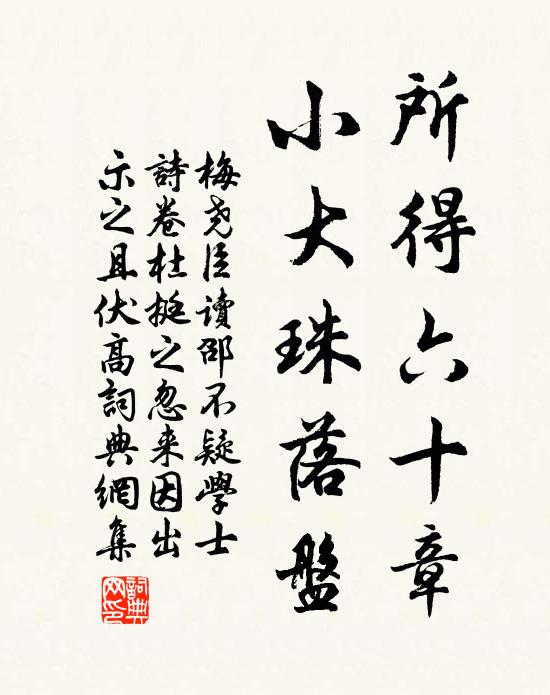 所得六十章
小大珠落盤
梅尧臣讀邵不疑學士
詩卷杜挺之忽来因出
示之且伏高詞典網集
詞典网印